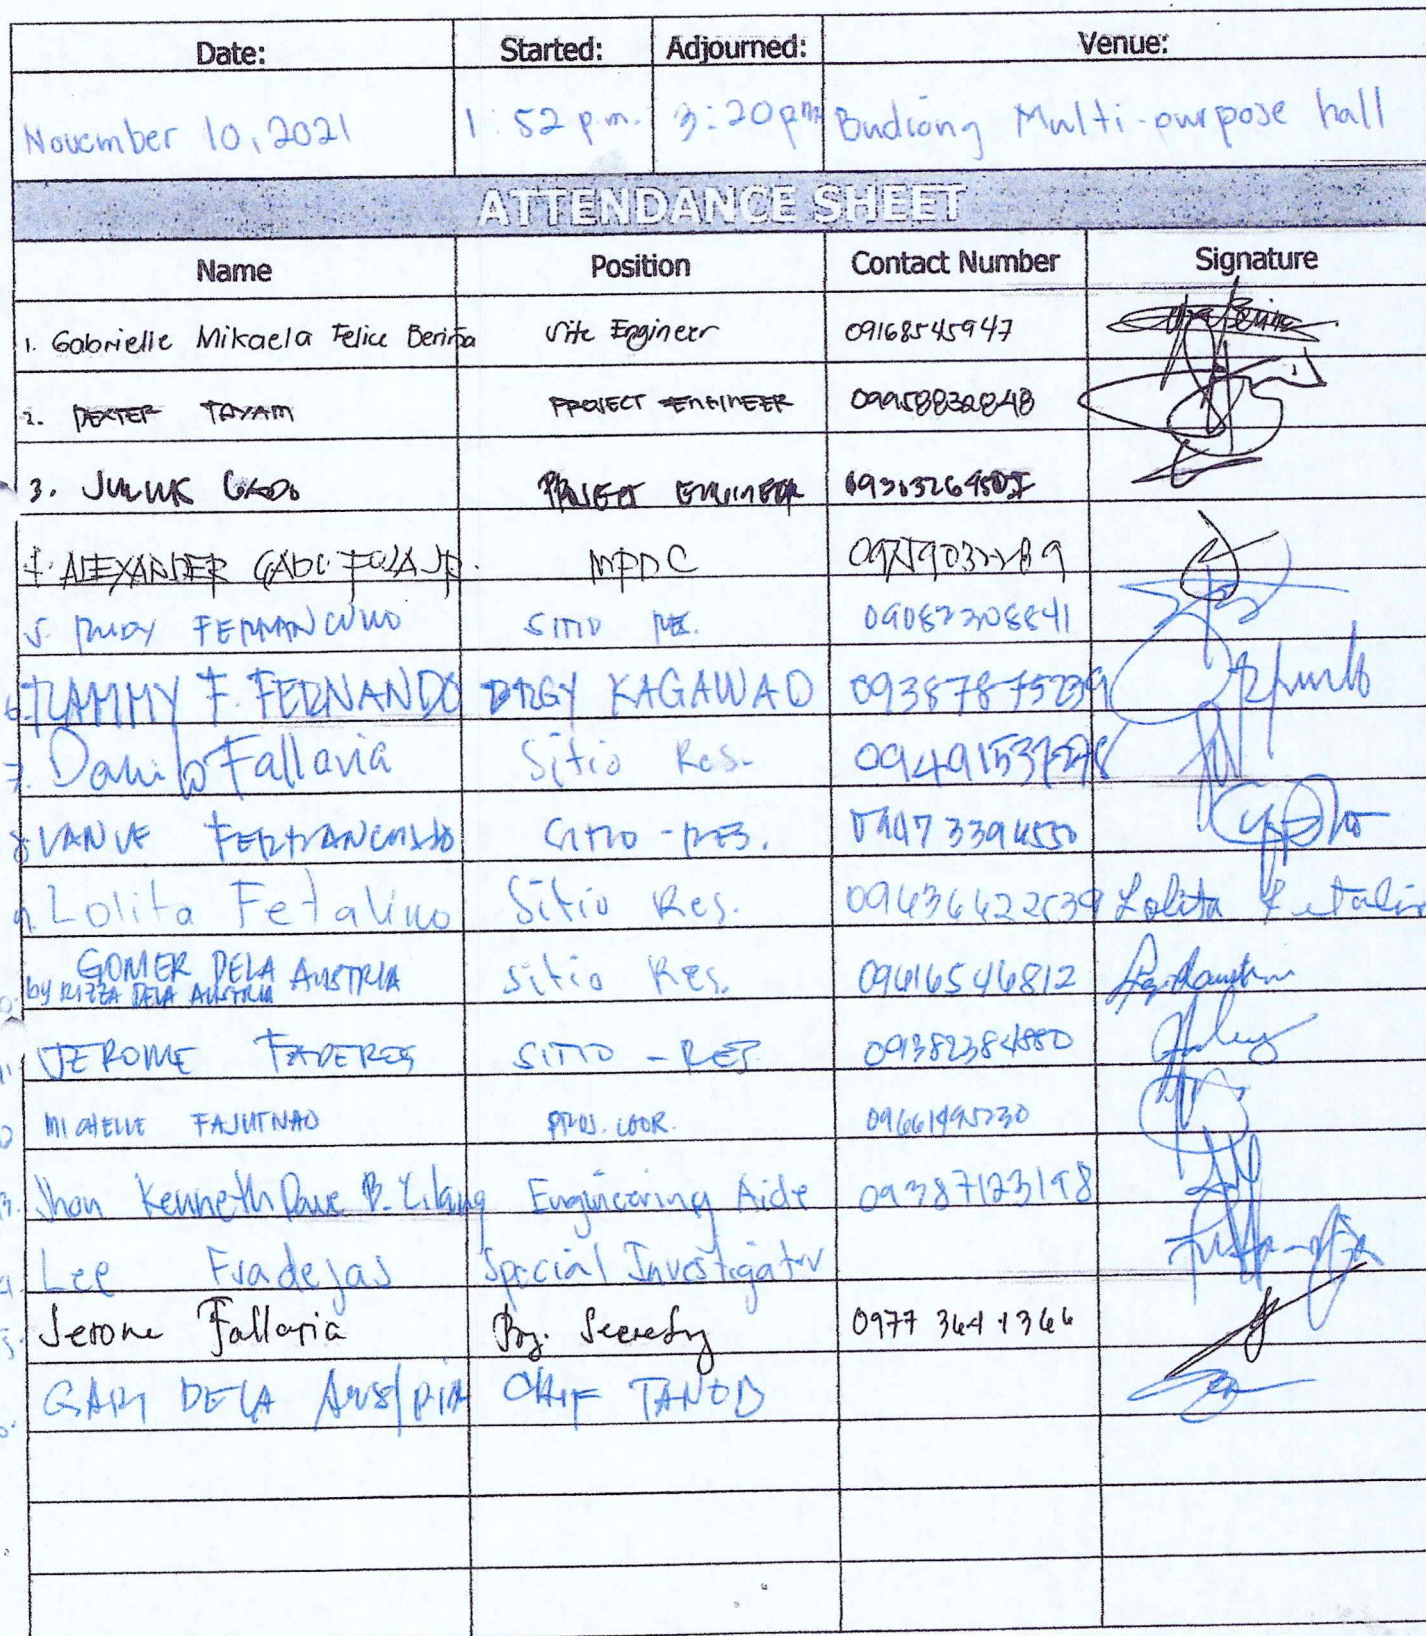 Date: Started: Adjourned: Venue:
November 10, 2021 1:52 p.m. 3:20pm Budiong Multi-purpose hall
ATTENDANCE SHEET
Name Position Contact Number Signature
1. Gabrielle Mikaela Felice Beriña Site Engineer 09168545947
2. DEXTER TAYAM PROJECT ENGINEER 09958832848
3. PROJECT ENGINEER
4. ALEXANDER JR. MPDC
5. RUDY SITIO RES. 09082308841
6. F. FERNANDO BRGY KAGAWAD 09387875239
7. Danilo Fallaria Sitio Res.
8. SITIO-RES.
9. Lolita Fetalino Sitio Res. 09636422539 Lolita Fetalin
GOMER DELA AUSTRIA Sitio Res. 09616546812
by RIZZA DELA AUSTRIA
11 JEROME FADERES SITIO-RES 09382384880
MICHELLE FAJUTNAO PROJ. COOR. 09661495230
13. Jhon Kenneth Dave B. Engineering Aide 09387123198
Lee Fradejas Special Investigator
Jerome Fallaria Brgy. Secretary 0977 364 1366
GARY DELA AUSTRIA CHIF TANOD